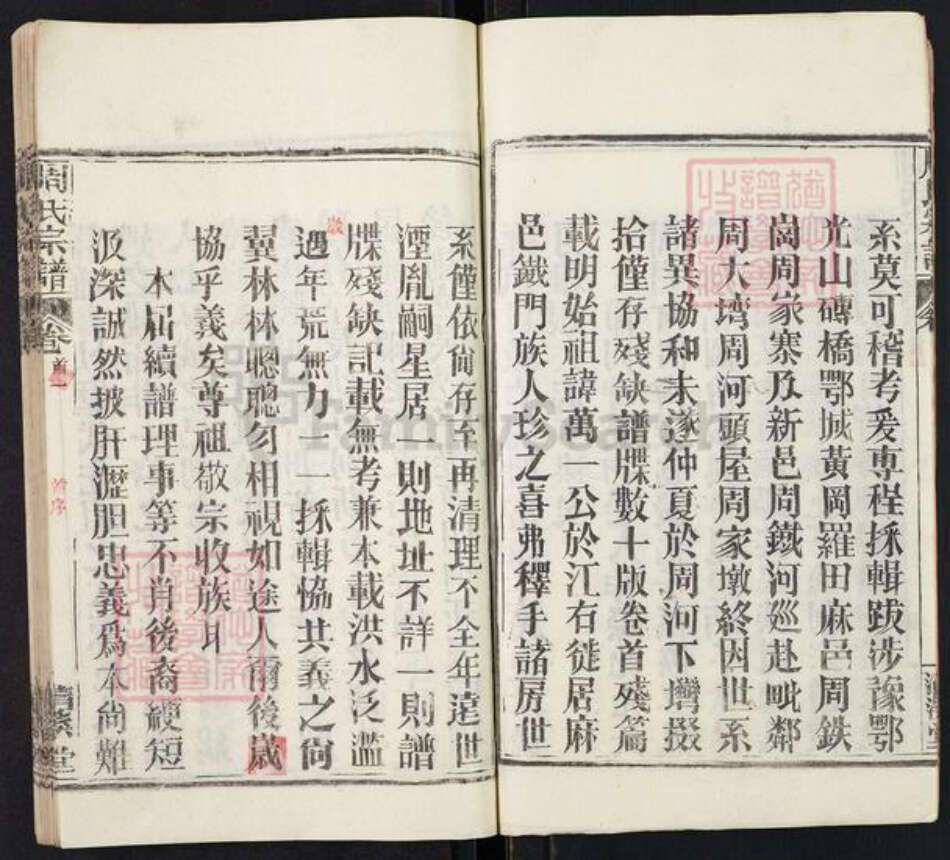 系莫可稽考爰専程採輯跋涉豫鄂
光山磚橋鄂城黃岡羅田麻邑周鉄
崗周家寨及新邑周鐵河廵赴毗鄰
周大塆周河頭屋周家墩終因世系
諸異協和未遂仲夏於周河下塆掇
拾僅存殘缺譜牒數十版卷首殘篇
載明始祖諱萬一公於江右徙居麻
邑鐵門族人珍之喜弗釋手諸房世
系僅依尙存至再清理不全年遠世
湮胤嗣星居一則地址不詳一則譜
牒殘缺記載無考兼本載洪水泛滥
歲
遇年荒無力一一採輯恊共義之尙
冀林林聰聰勿相視如途人爾後歲
協乎義矣尊祖敬宗收族耳
本屆續譜理事等不肖後裔綆短
汲深誠然披肝瀝胆忠義爲本尙難
周氏宗譜
卷
首一
首序
堂
FamilySearch